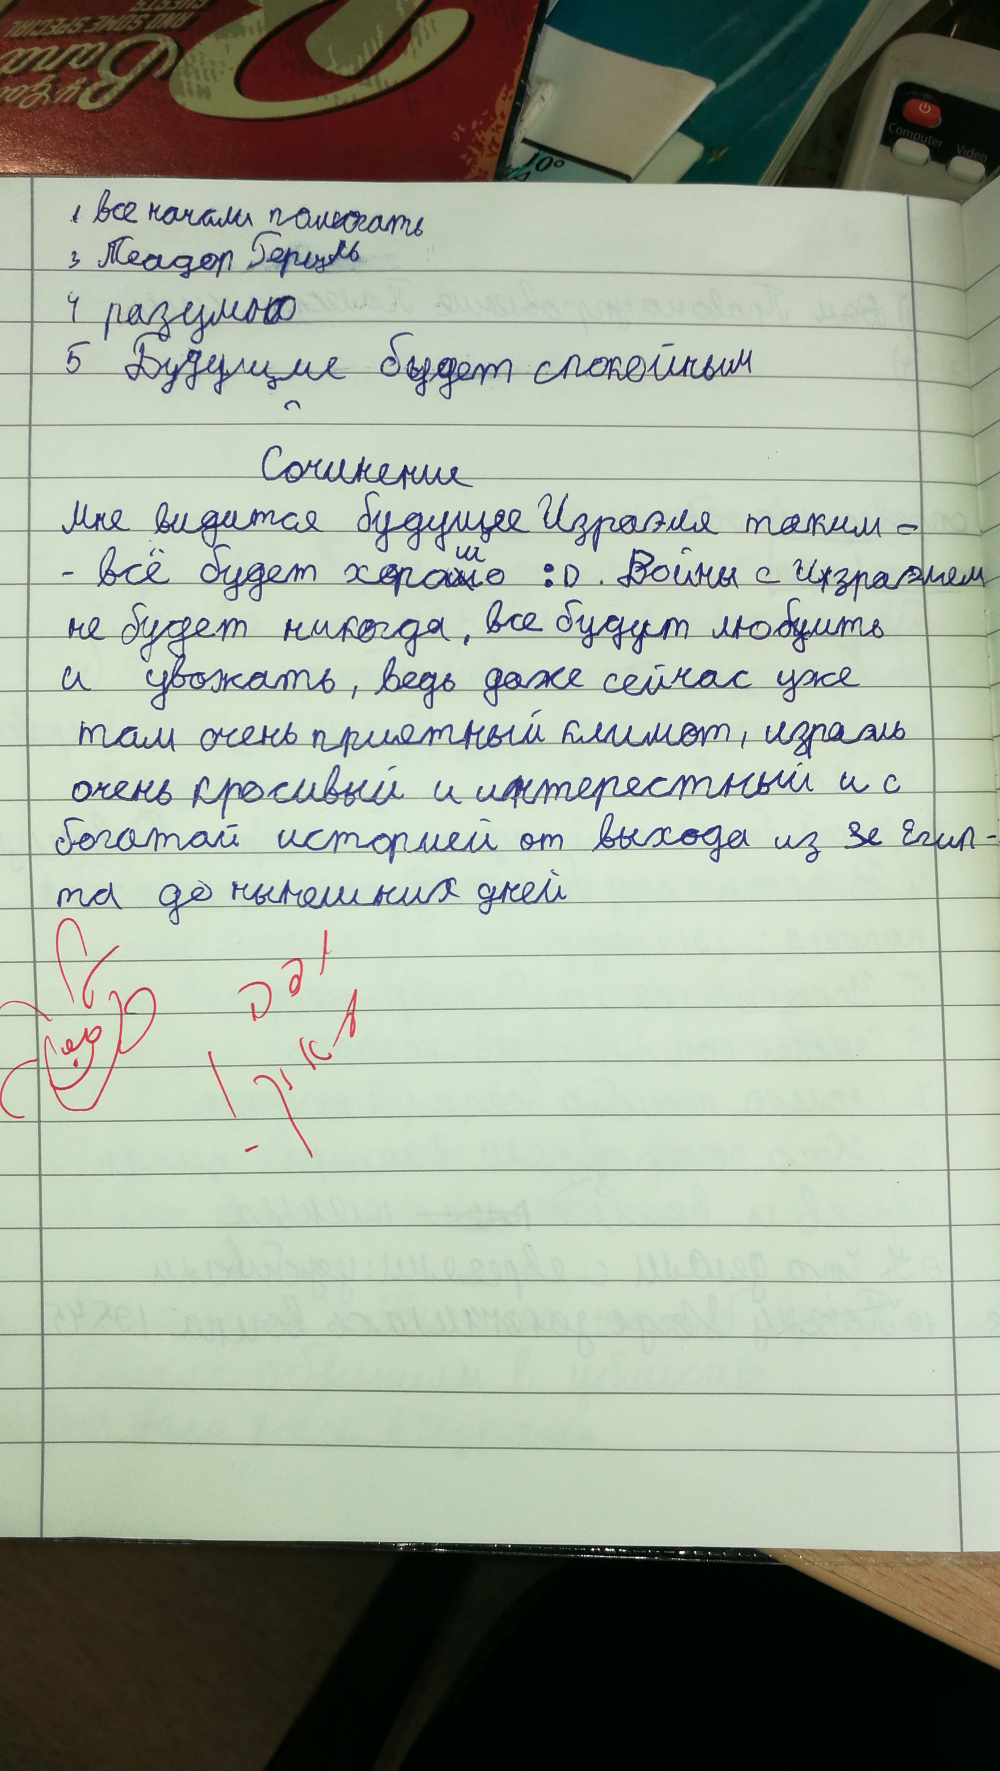 AND SOME SPECIAL
GUESTS
Computer
Video
1 все начали помогать
3 Теодор Герцль
4 разумно
5 Будущие будет спокойным
Сочинение
Мне видится будущее Израэля таким -
- всё будет хорошо :D. Войны с Израэлем
не будет никогда, все будут любить
и уважать, ведь даже сейчас уже
там очень приятный климот, израэль
очень красивый и интерестный и с
богатой историей от выхода из Егип-
та до нынешних дней